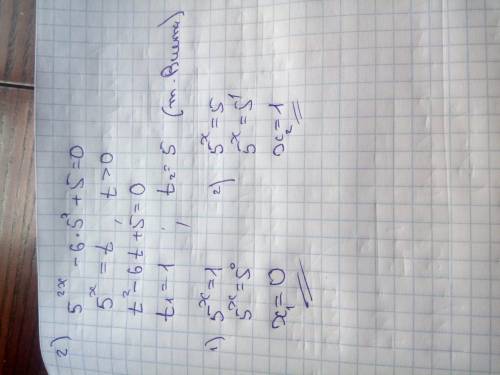 2) 5²ˣ - 6·5ˣ + 5 = 0
5ˣ = t, t > 0
t² - 6t + 5 = 0
t₁ = 1, t₂ = 5 (т. Виета)
1) 5ˣ = 1 2) 5ˣ = 5
5ˣ = 5⁰ 5ˣ = 5¹
x₁ = 0 x₂ = 1